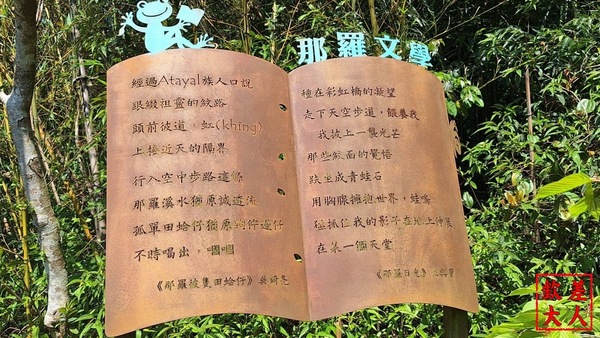 那羅文學
經過Atayal族人口說
眼綴祖靈的紋路
頭前彼道，虹(khīng)
上接近天的隔界
行入空中步路這條
那羅溪水猶原誠透流
孤單田蛤仔猶原蹛佇遮仔
不時唱出，嘓嘓
《那羅彼隻田蛤仔》 吳
種在彩虹橋的凝望
走下天空步道，餵養我
我披上一襲光芒
那些紋面的覺悟
趺坐成青蛙石
用胸膛擁抱世界，蛙鳴
在某一個天堂
《那羅日光》
欽差大人